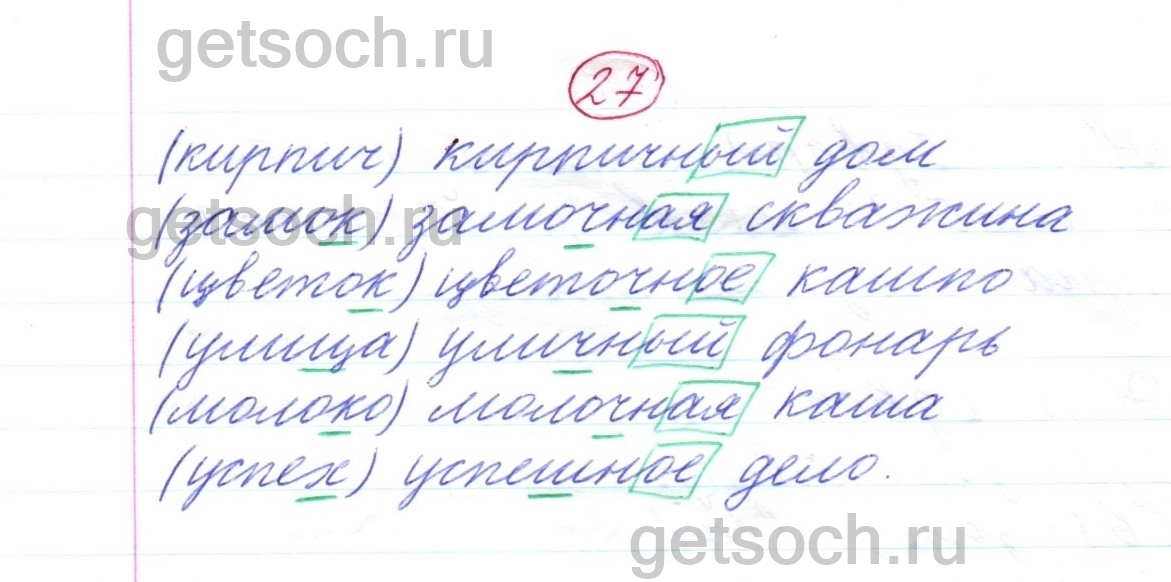 getsoch.ru
27
(кирпич) кирпичный дом
(замок) замочная скважина
getsoch.ru
(цветок) цветочное кашпо
(улица) уличный фонарь
(молоко) молочная каша
(успех) успешное дело.
getsoch.ru